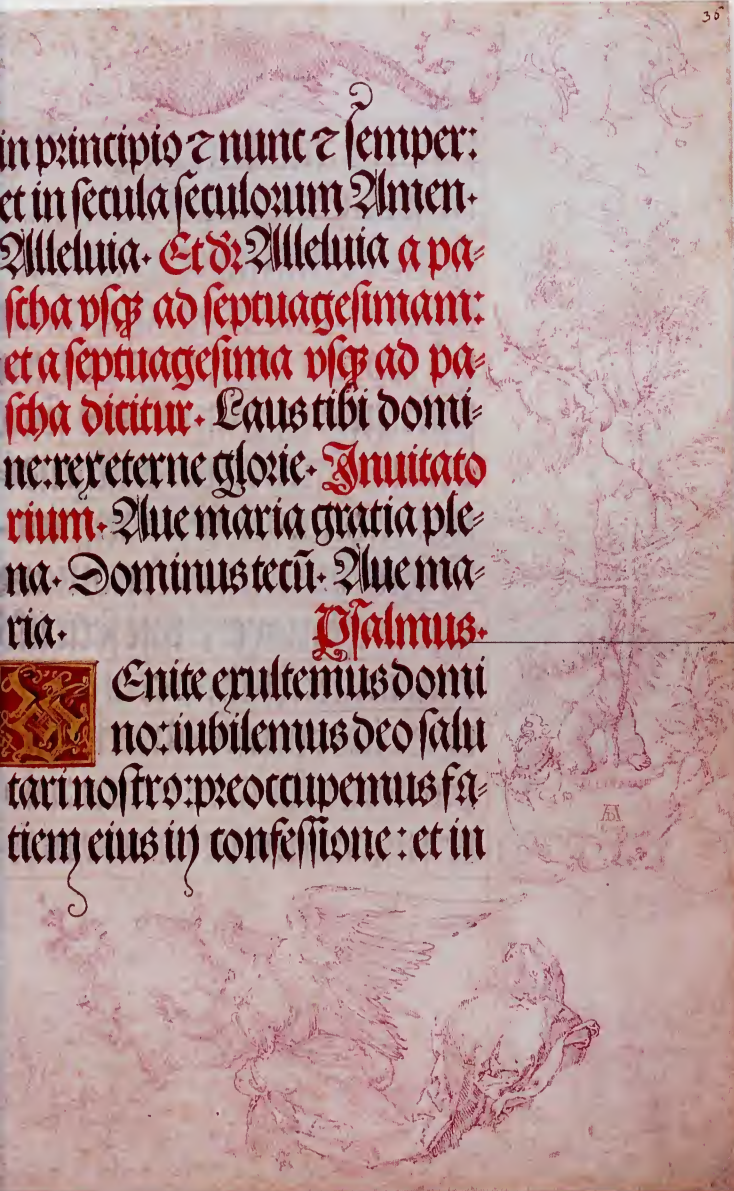 35
in principio ⁊ nunc ⁊ ſemper:
et in ſecula ſeculoꝛum Amen.
Alleluia. Et dꝛ: Alleluia a pa⸗
ſcha vſqꝫ ad ſeptuageſimam:
et a ſeptuageſima vſqꝫ ad pa⸗
ſcha dicitur. Laus tibi domi⸗
ne: rex eterne gloꝛie. Inuitato
rium. Aue maria gratia ple⸗
na. Dominus tecū. Aue ma⸗
ria. Pſalmus.
VEnite exultemus domi
no: iubilemus deo ſalu
tari noſtro: pꝛeoccupemus fa⸗
ciem eius in confeſſione: et in
AD